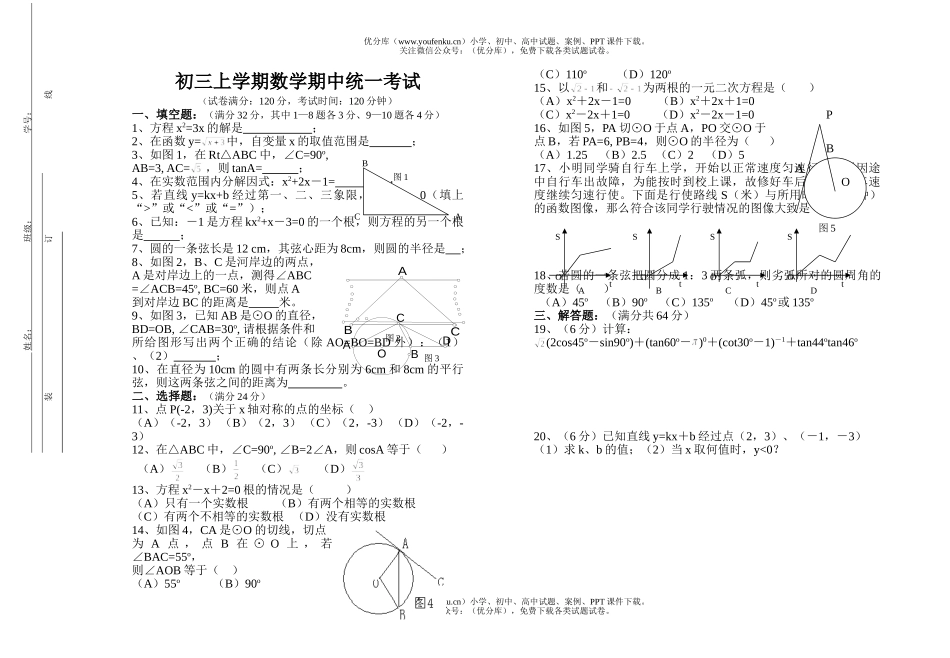 优分库（www.youfenku.cn）小学、初中、高中试题、案例、PPT 课件下载。
关注微信公众号：（优分库），免费下载各类试题试卷。
学号：
班级：
姓名：
线
订
装
初三上学期数学期中统一考试
（试卷满分：120 分，考试时间：120 分钟）
一、填空题：（满分 32 分，其中 1—8 题各 3 分、9—10 题各 4 分）
1、方程 x²=3x 的解是____________；
2、在函数 y=√x+3中，自变量 x 的取值范围是________；
3、如图 1，在 Rt△ABC 中，∠C=90º,
AB=3, AC=√5，则 tanA=_______；
4、在实数范围内分解因式：x²+2x－1=
5、若直线 y=kx+b 经过第一、二、三象限，  0（填上
“>”或“<”或“=”）；
6、已知：－1 是方程 kx²+x－3=0 的一个根，则方程的另一个根
是______；
7、圆的一条弦长是 12 cm，其弦心距为 8cm，则圆的半径是__；
8、如图 2，B、C 是河岸边的两点，
A 是对岸边上的一点，测得∠ABC
=∠ACB=45º, BC=60 米，则点 A
到对岸边 BC 的距离是_____米。
9、如图 3，已知 AB 是⊙O 的直径，
BD=OB, ∠CAB=30º, 请根据条件和
所给图形写出两个正确的结论（除 AO=BO=BD 外）：（1）
、（2）_______；
10、在直径为 10cm 的圆中有两条长分别为 6cm 和 8cm 的平行
弦，则这两条弦之间的距离为__________。
B
图 1
C
A
A
B
C
图 2
C
A
O
B
D
图 3
二、选择题：（满分 24 分）
11、点 P(-2，3)关于 x 轴对称的点的坐标（ ）
（A）（-2，3）（B）（2，3）（C）（2，-3）（D）（-2，-
3）
12、在△ABC 中，∠C=90º, ∠B=2∠A，则 cosA 等于（ ）
（A）√3/2 （B）1/2 （C）√3 （D）√3/3
13、方程 x²－x＋2=0 根的情况是（ ）
（A）只有一个实数根 （B）有两个相等的实数根
（C）有两个不相等的实数根 （D）没有实数根
14、如图 4，CA 是⊙O 的切线，切点
为 A 点，点 B 在 ⊙ O 上，若
∠BAC=55º，
则∠AOB 等于（ ）
（A）55º （B）90º
A
O
C
B
图4
（C）110º （D）120º
15、以√2－1和－√2－1为两根的一元二次方程是（ ）
（A）x²＋2x－1=0 （B）x²＋2x＋1=0
（C）x²－2x＋1=0 （D）x²－2x－1=0
16、如图 5，PA 切⊙O 于点 A，PO 交⊙O 于
点 B，若 PA=6, PB=4，则⊙O 的半径为（ ）
（A）1.25 （B）2.5 （C）2 （D）5
P
B
O
A
图 5
17、小明同学骑自行车上学，开始以正常速度匀速行 因途
中自行车出故障，为能按时到校上课，故修好车后 速
度继续匀速行使。下面是行使路线 S（米）与所用
的函数图像，那么符合该同学行驶情况的图像大致是
S S S S
t t t t
A B C D
18、若圆的一条弦把圆分成 1：3 两条弧，则劣弧所对的圆周角的
度数是（ ）
（A）45º （B）90º （C）135º （D）45º 或 135º
三、解答题：（满分共 64 分）
19、（6 分）计算：
√2(2cos45º－sin90º)＋(tan60º－π)⁰＋(cot30º－1)⁻¹＋tan44ºtan46º
20、（6 分）已知直线 y=kx＋b 经过点（2，3）、（－1，－3）
（1）求 k、b 的值；（2）当 x 取何值时，y<0？
u.cn）小学、初中、高中试题、案例、PPT 课件下载。
众号：（优分库），免费下载各类试题试卷。